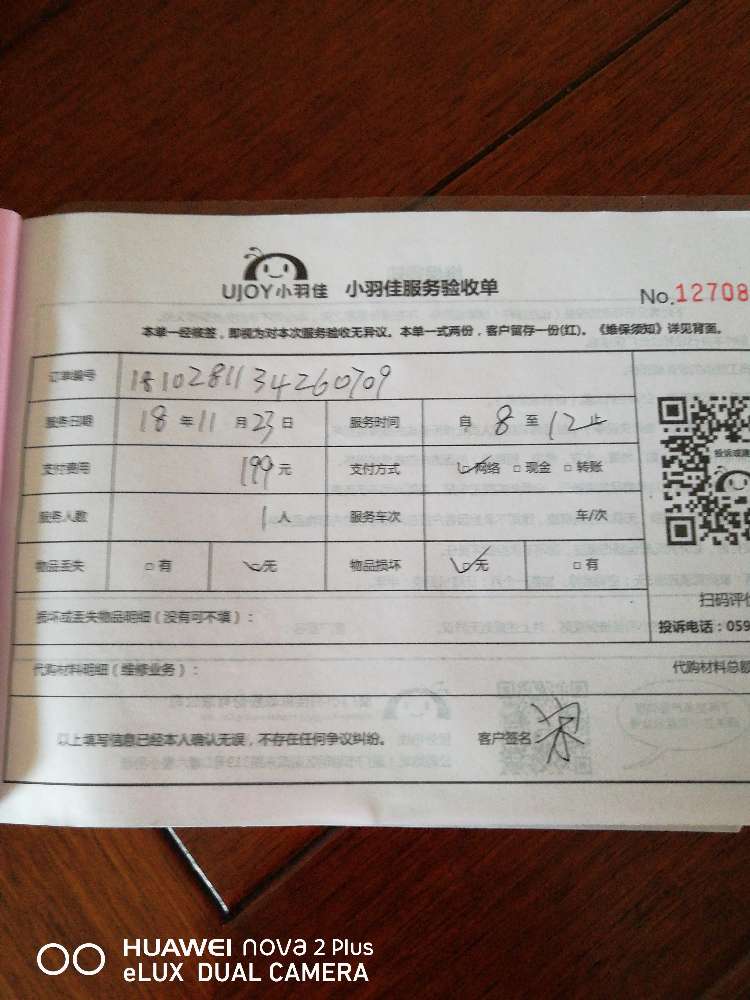 UJOY小羽佳 小羽佳服务验收单
No.12708
本单一经核签，即视为对本次服务验收无异议。本单一式两份，客户留存一份(红)。《维保须知》详见背面。
订单编号 1810281134260709
服务日期 18年11月23日 服务时间 自8至12止
支付费用 199元 支付方式 网络 现金 转账
服务人数 1人 服务车次 车/次
物品丢失 有 无 物品损坏 无 有
扫码评价
损坏或丢失物品明细（没有可不填）：
投诉电话：059
代购材料明细（维修业务）： 代购材料总额
以上填写信息已经本人确认无误，不存在任何争议纠纷。 客户签名：
HUAWEI nova 2 Plus
eLUX DUAL CAMERA